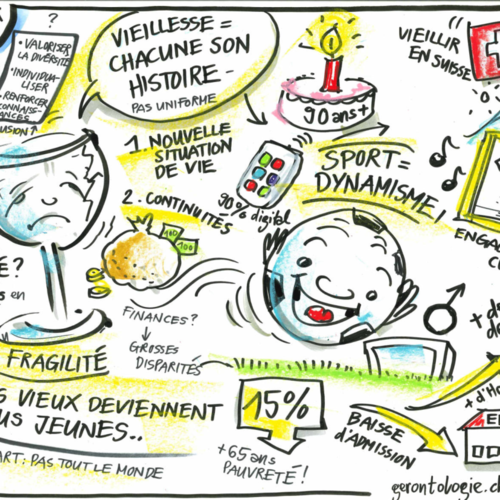 ?
• VALORISER
LA DIVERSITÉ
• INDIVIDUA-
LISER
RENFORCER
CONNAISS-
ANCES
VIEILLESSE =
CHACUNE SON
HISTOIRE -
PAS UNIFORME
90 ans+
VIEILLIR
EN SUISSE
1. NOUVELLE
SITUATION
DE VIE
2. CONTINUITÉS
90% digital
SPORT =
DYNAMISME!
100
100
FINANCES?
GROSSES
DISPARITÉS
É?
en
FRAGILITÉ
S VIEUX DEVIENNENT
US JEUNES..
ART: PAS TOUT LE MONDE
15%
+65 ans
PAUVRETÉ!
BAISSE
d'ADMISSION
ENGA
+ d'H
gerontologie.ch